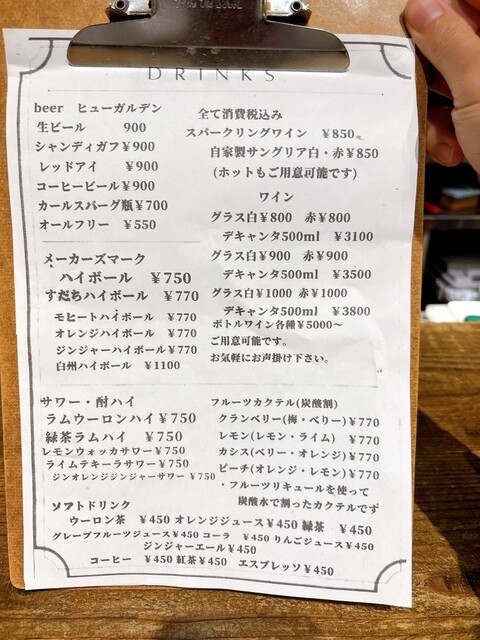 DRINKS
beer ヒューガルデン
生ビール 900
シャンディガフ¥900
レッドアイ ¥900
コーヒービール¥900
カールスバーグ瓶¥700
オールフリー ¥550
メーカーズマーク
ハイボール ¥750
すだちハイボール ¥770
モヒートハイボール ¥770
オレンジハイボール ¥770
ジンジャーハイボール¥770
白州ハイボール ¥1100
全て消費税込み
スパークリングワイン ¥850
自家製サングリア白・赤¥850
(ホットもご用意可能です)
ワイン
グラス白¥800 赤¥800
デキャンタ500ml ¥3100
グラス白¥900 赤¥900
デキャンタ500ml ¥3500
グラス白¥1000 赤¥1000
デキャンタ500ml ¥3800
ボトルワイン各種¥5000〜
ご用意可能です。
お気軽にお声掛け下さい。
サワー・酎ハイ
ラムウーロンハイ¥750
緑茶ラムハイ ¥750
レモンウォッカサワー¥750
ライムテキーラサワー¥750
ジンオレンジジンジャーサワー ¥750
フルーツカクテル(炭酸割)
クランベリー(梅・ベリー)¥770
レモン(レモン・ライム) ¥770
カシス(ベリー・オレンジ)¥770
ピーチ(オレンジ・レモン)¥770
・フルーツリキュールを使って
炭酸水で割ったカクテルです
ソフトドリンク
ウーロン茶 ¥450 オレンジジュース¥450 緑茶 ¥450
グレープフルーツジュース¥450 コーラ ¥450 りんごジュース¥450
ジンジャーエール¥450
コーヒー ¥450 紅茶¥450 エスプレッソ¥450